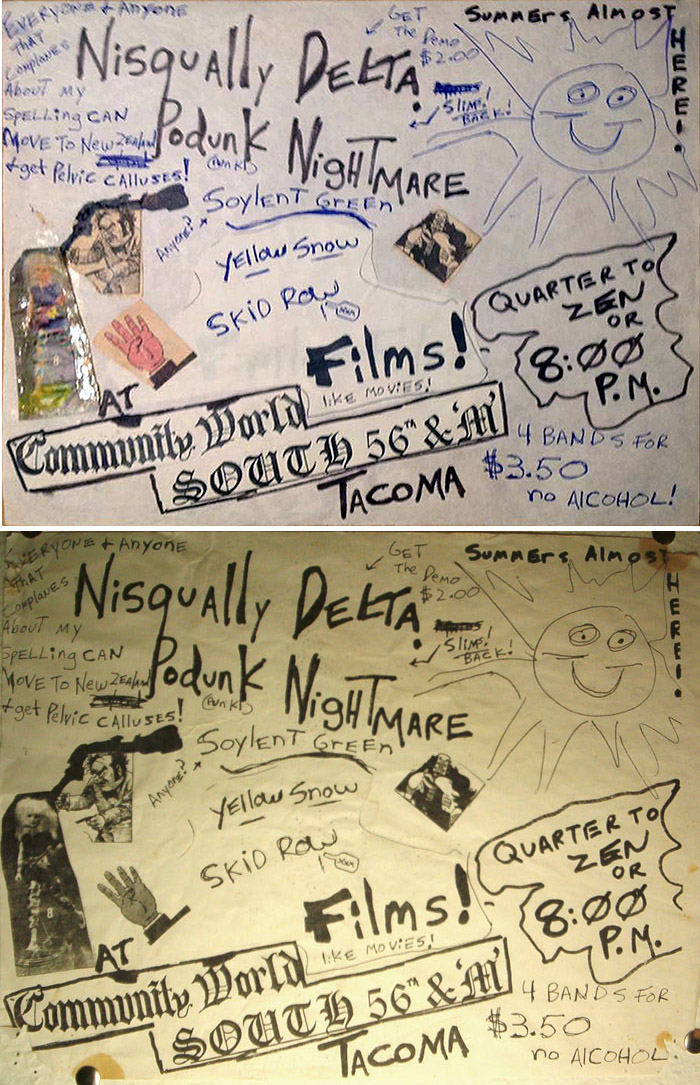 EVERYONE + ANYONE
THAT
COMPLANES
ABOUT MY
SPELLING CAN
MOVE TO NEW ZEALAND
+ get Pelvic CALLUSES!
Nisqually DELTA
Podunk NigHTMARE
(PUNK)
GET
The Demo
$2.00
SLIMS
BACK!
Summers Almost
HERE!
Anyone?
SOYLENT GREEN
YELLOW SNOW
SKID ROW
Films!
LIKE MOVIES!
QUARTER TO
ZEN
OR
8:00
P.M.
AT
Community World
SOUTH 56th & 'M'
TACOMA
4 BANDS FOR
$3.50
no AlCOHOL!
EVERYONE + ANYONE
THAT
COMPLANES
ABOUT MY
SPELLING CAN
MOVE TO NEW ZEALAND
+ get Pelvic CALLUSES!
Nisqually DELTA
Podunk NigHTMARE
(PUNK)
GET
The Demo
$2.00
SLIMS
BACK!
Summers Almost
HERE!
Anyone?
SOYLENT GREEN
YELLOW SNOW
SKID ROW
Films!
LIKE MOVIES!
QUARTER TO
ZEN
OR
8:00
P.M.
8
AT
Community World
SOUTH 56th & 'M'
TACOMA
4 BANDS FOR
$3.50
no AlCOHOL!